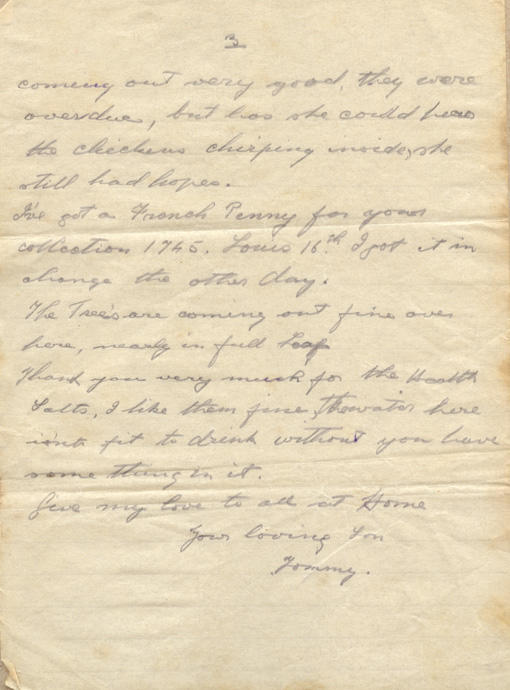 3
coming out very good, they were
overdue, but has she could hear
the chickens chirping inside, she
still had hopes.
I've got a French Penny for your
collection 1745. Louis 16th I got it in
change the other day.
The Tree's are coming out fine over
here, nearly in full Leaf
Thank you very much for the Health
Salts, I like them fine, the water here
isnt fit to drink without you have
some thing in it.
Give my love to all at Home
Your loving Son
Tommy.